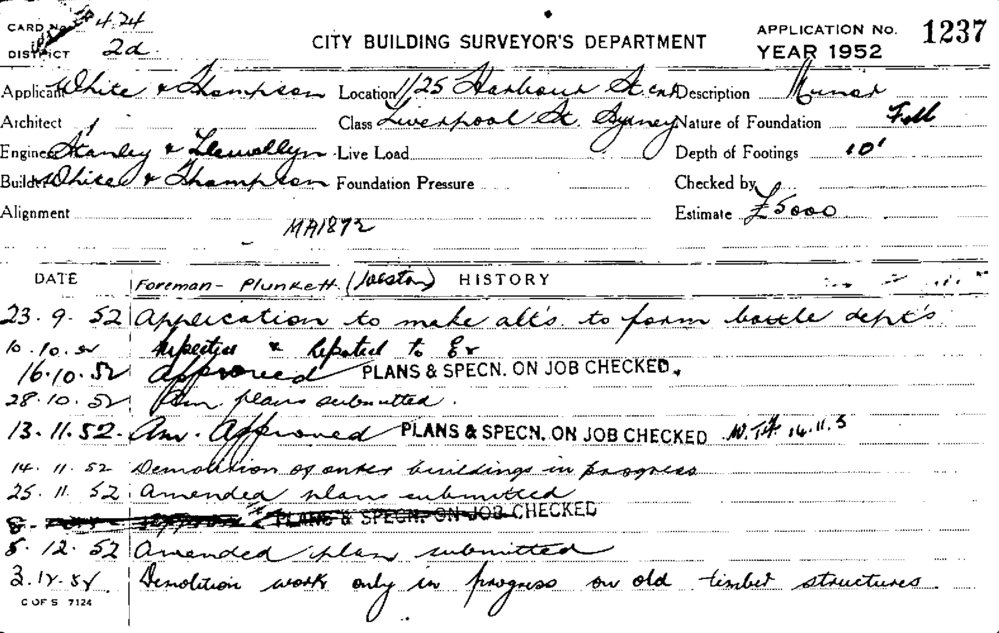 CARD No. 424
DISTRICT 2d.
CITY BUILDING SURVEYOR'S DEPARTMENT
APPLICATION No. 1237
YEAR 1952
Applicant White & Thompson Location 1/25 Harbour St cnr Description Minor
Architect / Class Liverpool St. Sydney Nature of Foundation Fill
Engineer Stanley & Llewellyn Live Load Depth of Footings 10'
Builder White & Thompson Foundation Pressure Checked by
Alignment MA1872 Estimate £5000
DATE Foreman - Plunkett. (Weston) HISTORY
23.9.52 Application to make alt's. to form bottle dept's
10.10.52 Inspected & Reported to
16.10.52 Approved PLANS & SPECN. ON JOB CHECKED.
28.10.52 Am. plans submitted.
13.11.52. Am. Approved PLANS & SPECN. ON JOB CHECKED 14.11.5
14.11.52 Demolition of buildings in progress
25.11.52 Amended plans submitted
PLANS & SPECN. ON JOB CHECKED
5.12.52 Amended plan submitted
Demolition work only in progress on old timber structures.
C OF S 7124